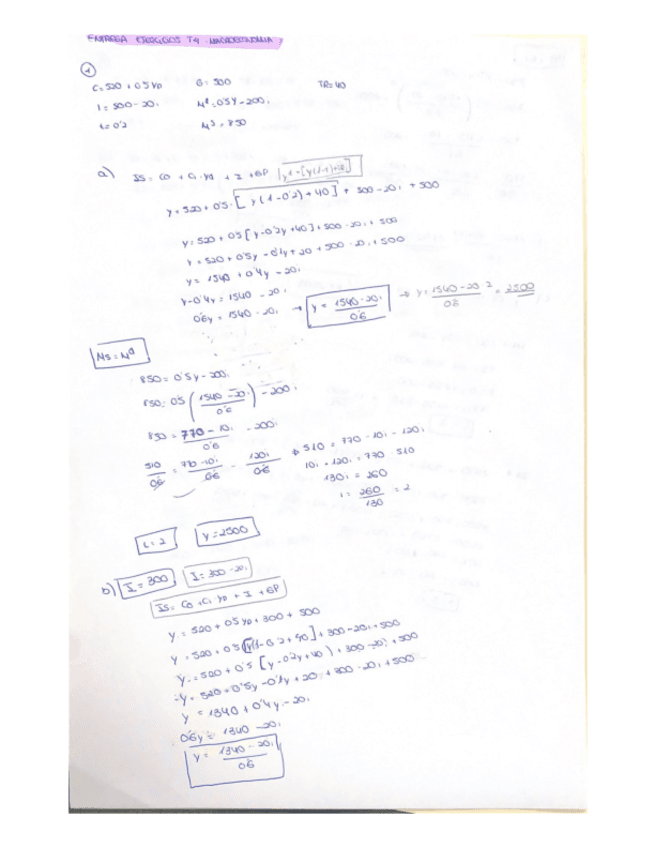 ENTREGA EJERCICIOS T4 MACROECONOMIA
1
C = 520 + 0'5 YD G = 500 TR = 40
I = 500 - 20i Md = 0'5Y - 200i
t = 0'2 Ms = 850
a) IS = C0 + C1 · YD + I + GP
y = 520 + 0'5 · [y(1 - 0'2) + 40] + 500 - 20i + 500
y = 520 + 0'5 [y - 0'2y + 40] + 500 - 20i + 500
y = 520 + 0'5y - 0'1y + 20 + 500 - 20i + 500
y = 1540 + 0'4y - 20i
y - 0'4y = 1540 - 20i
0'6y = 1540 - 20i → y = 1540 - 20i / 0'6 → y = 1540 - 20 · 2 / 0'6 = 2500
Ms = Md
850 = 0'5y - 200i
850 = 0'5 (1540 - 20i / 0'6) - 200i
850 = 770 - 10i / 0'6 - 200i
510 / 0'6 = 770 - 10i / 0'6 - 120i / 0'6
510 = 770 - 10i - 120i
10i + 120i = 770 - 510
130i = 260
i = 260 / 130 = 2
i = 2 y = 2500
b) I = 300 I = 300 - 20i
IS = C0 + C1 YD + I + GP
y = 520 + 0'5 YD + 300 + 500
y = 520 + 0'5 [y(1 - 0'2 + 40] + 300 - 20i + 500
y = 520 + 0'5 [y - 0'2y + 40) + 300 - 20i + 500
y = 520 + 0'5y - 0'1y + 20 + 300 - 20i + 500
y = 1340 + 0'4y - 20i
0'6y = 1340 - 20i
y = 1340 - 20i / 0'6